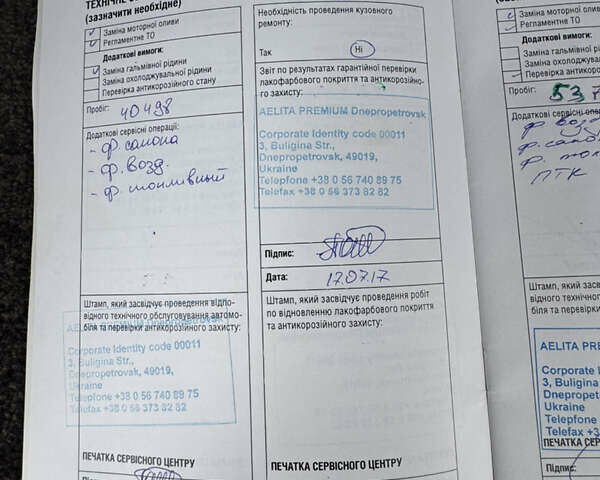 ТЕХНІЧНЕ
(зазначити необхідне)
Заміна моторної оливи
Регламентне ТО
Додаткові вимоги:
Заміна гальмівної рідини
Заміна охолоджувальної рідини
Перевірка антикорозійного стану
Пробіг: 40498
Додаткові сервісні операції:
- ф. салона
- ф. возд.
- ф. топливный
Штамп, який засвідчує проведення відпо-
відного технічного обслуговування автомо-
біля та перевірки антикорозійного захисту:
AELITA PREMIUM Dnepropetrovsk
Corporate Identity code 00011
3, Buligina Str.,
Dnepropetrovsk, 49019,
Ukraine
Telepfone +38 0 56 740 89 75
Telefax +38 0 56 373 82 82
ПЕЧАТКА СЕРВІСНОГО ЦЕНТРУ
Підпис:
Необхідність проведення кузовного
ремонту:
Так Ні
Звіт по результатах гарантійної перевірки
лакофарбового покриття та антикорозійно-
го захисту:
AELITA PREMIUM Dnepropetrovsk
Corporate Identity code 00011
3, Buligina Str.,
Dnepropetrovsk, 49019,
Ukraine
Telepfone +38 0 56 740 89 75
Telefax +38 0 56 373 82 82
Підпис:
Дата: 17.07.17
Штамп, який засвідчує проведення робіт
по відновленню лакофарбового покриття
та антикорозійного захисту:
ПЕЧАТКА СЕРВІСНОГО ЦЕНТРУ
Заміна моторної
Регламентне ТО
Додаткові
Заміна гальмівної
Заміна охолоджу
Перевірка антикоро
Пробіг: 537
Додаткові сервісні опе
ф. возд
ф. сало
ф. топ
ПТК
Штамп, який за
відного технічн
біля та перевірки
AELITA PREMI
Corporate Ide
3, Buligina St
Dnepropet
Ukraine
Telepfone +
Telefax +3
ПЕЧАТКА СЕРВ
Підпис: